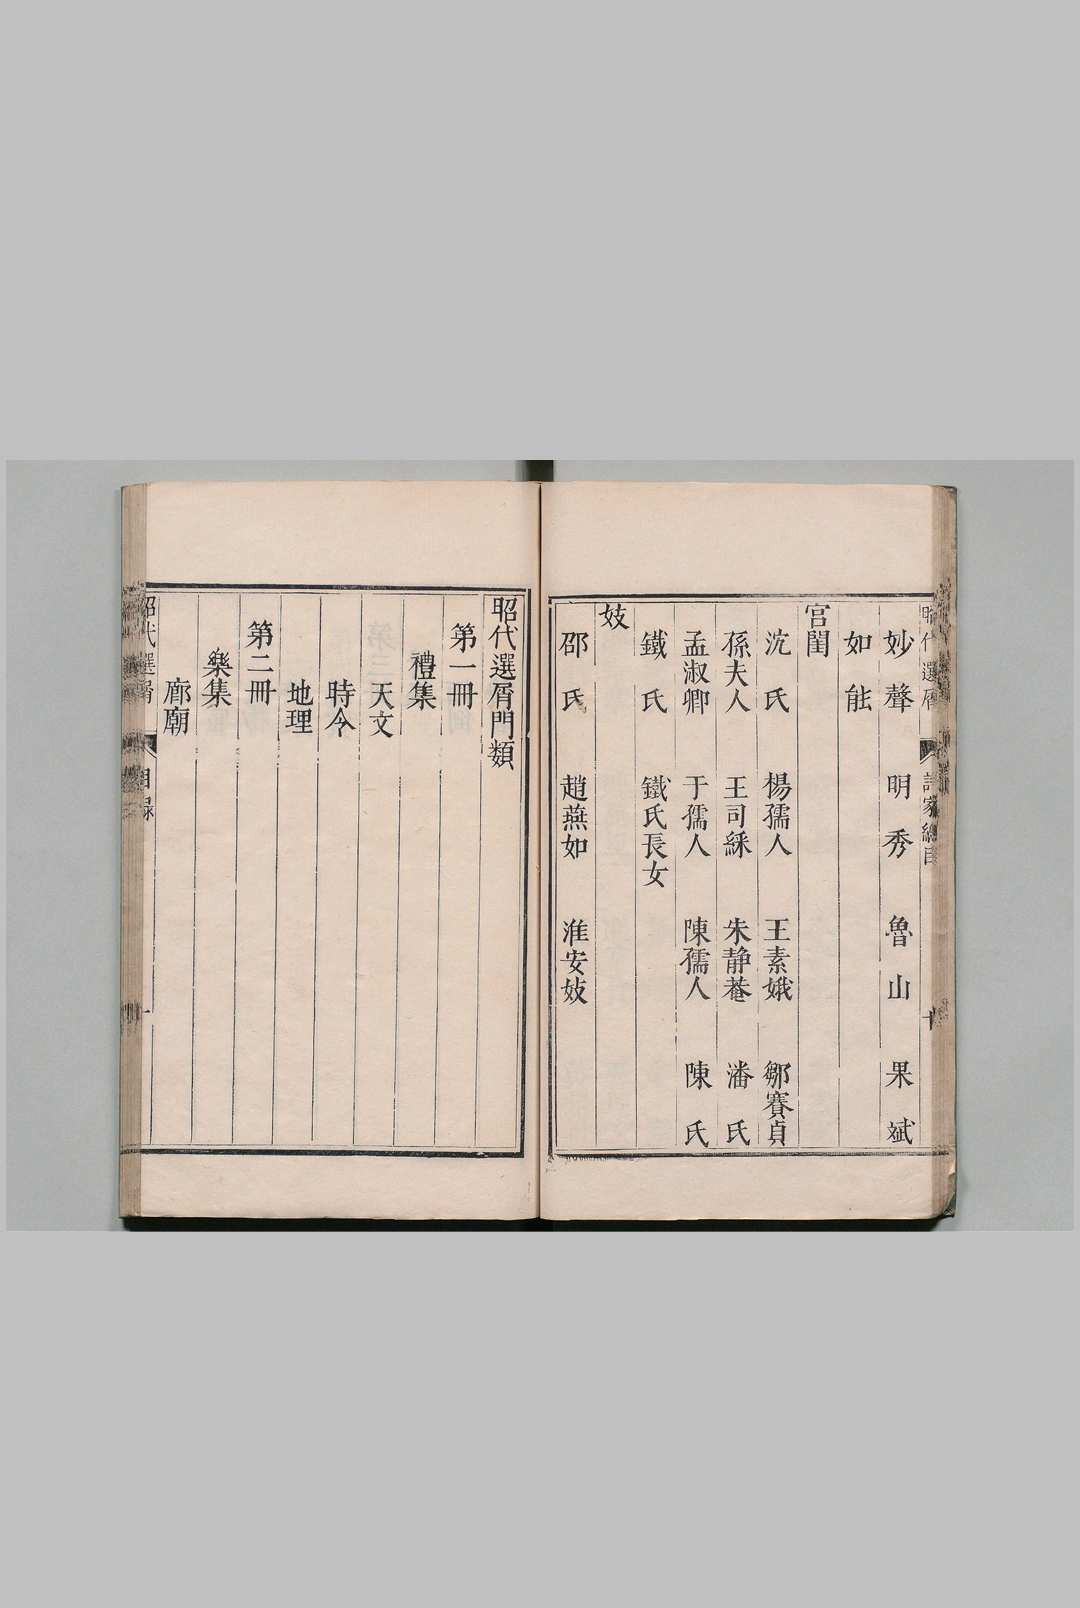 昭代選屑 詩家總目 十
妙聲 明秀 魯山 果斌
如能
宫閨
沈氏 楊孺人 王素娥 鄒賽貞
孫夫人 王司綵 朱静菴 潘氏
孟淑卿 于孺人 陳孺人 陳氏
鐵氏 鐵氏長女
妓
邵氏 趙燕如 淮安妓
昭代選屑門類
第一冊
禮集
天文
時令
地理
第二冊
樂集
廊廟
昭代選屑 目録 一